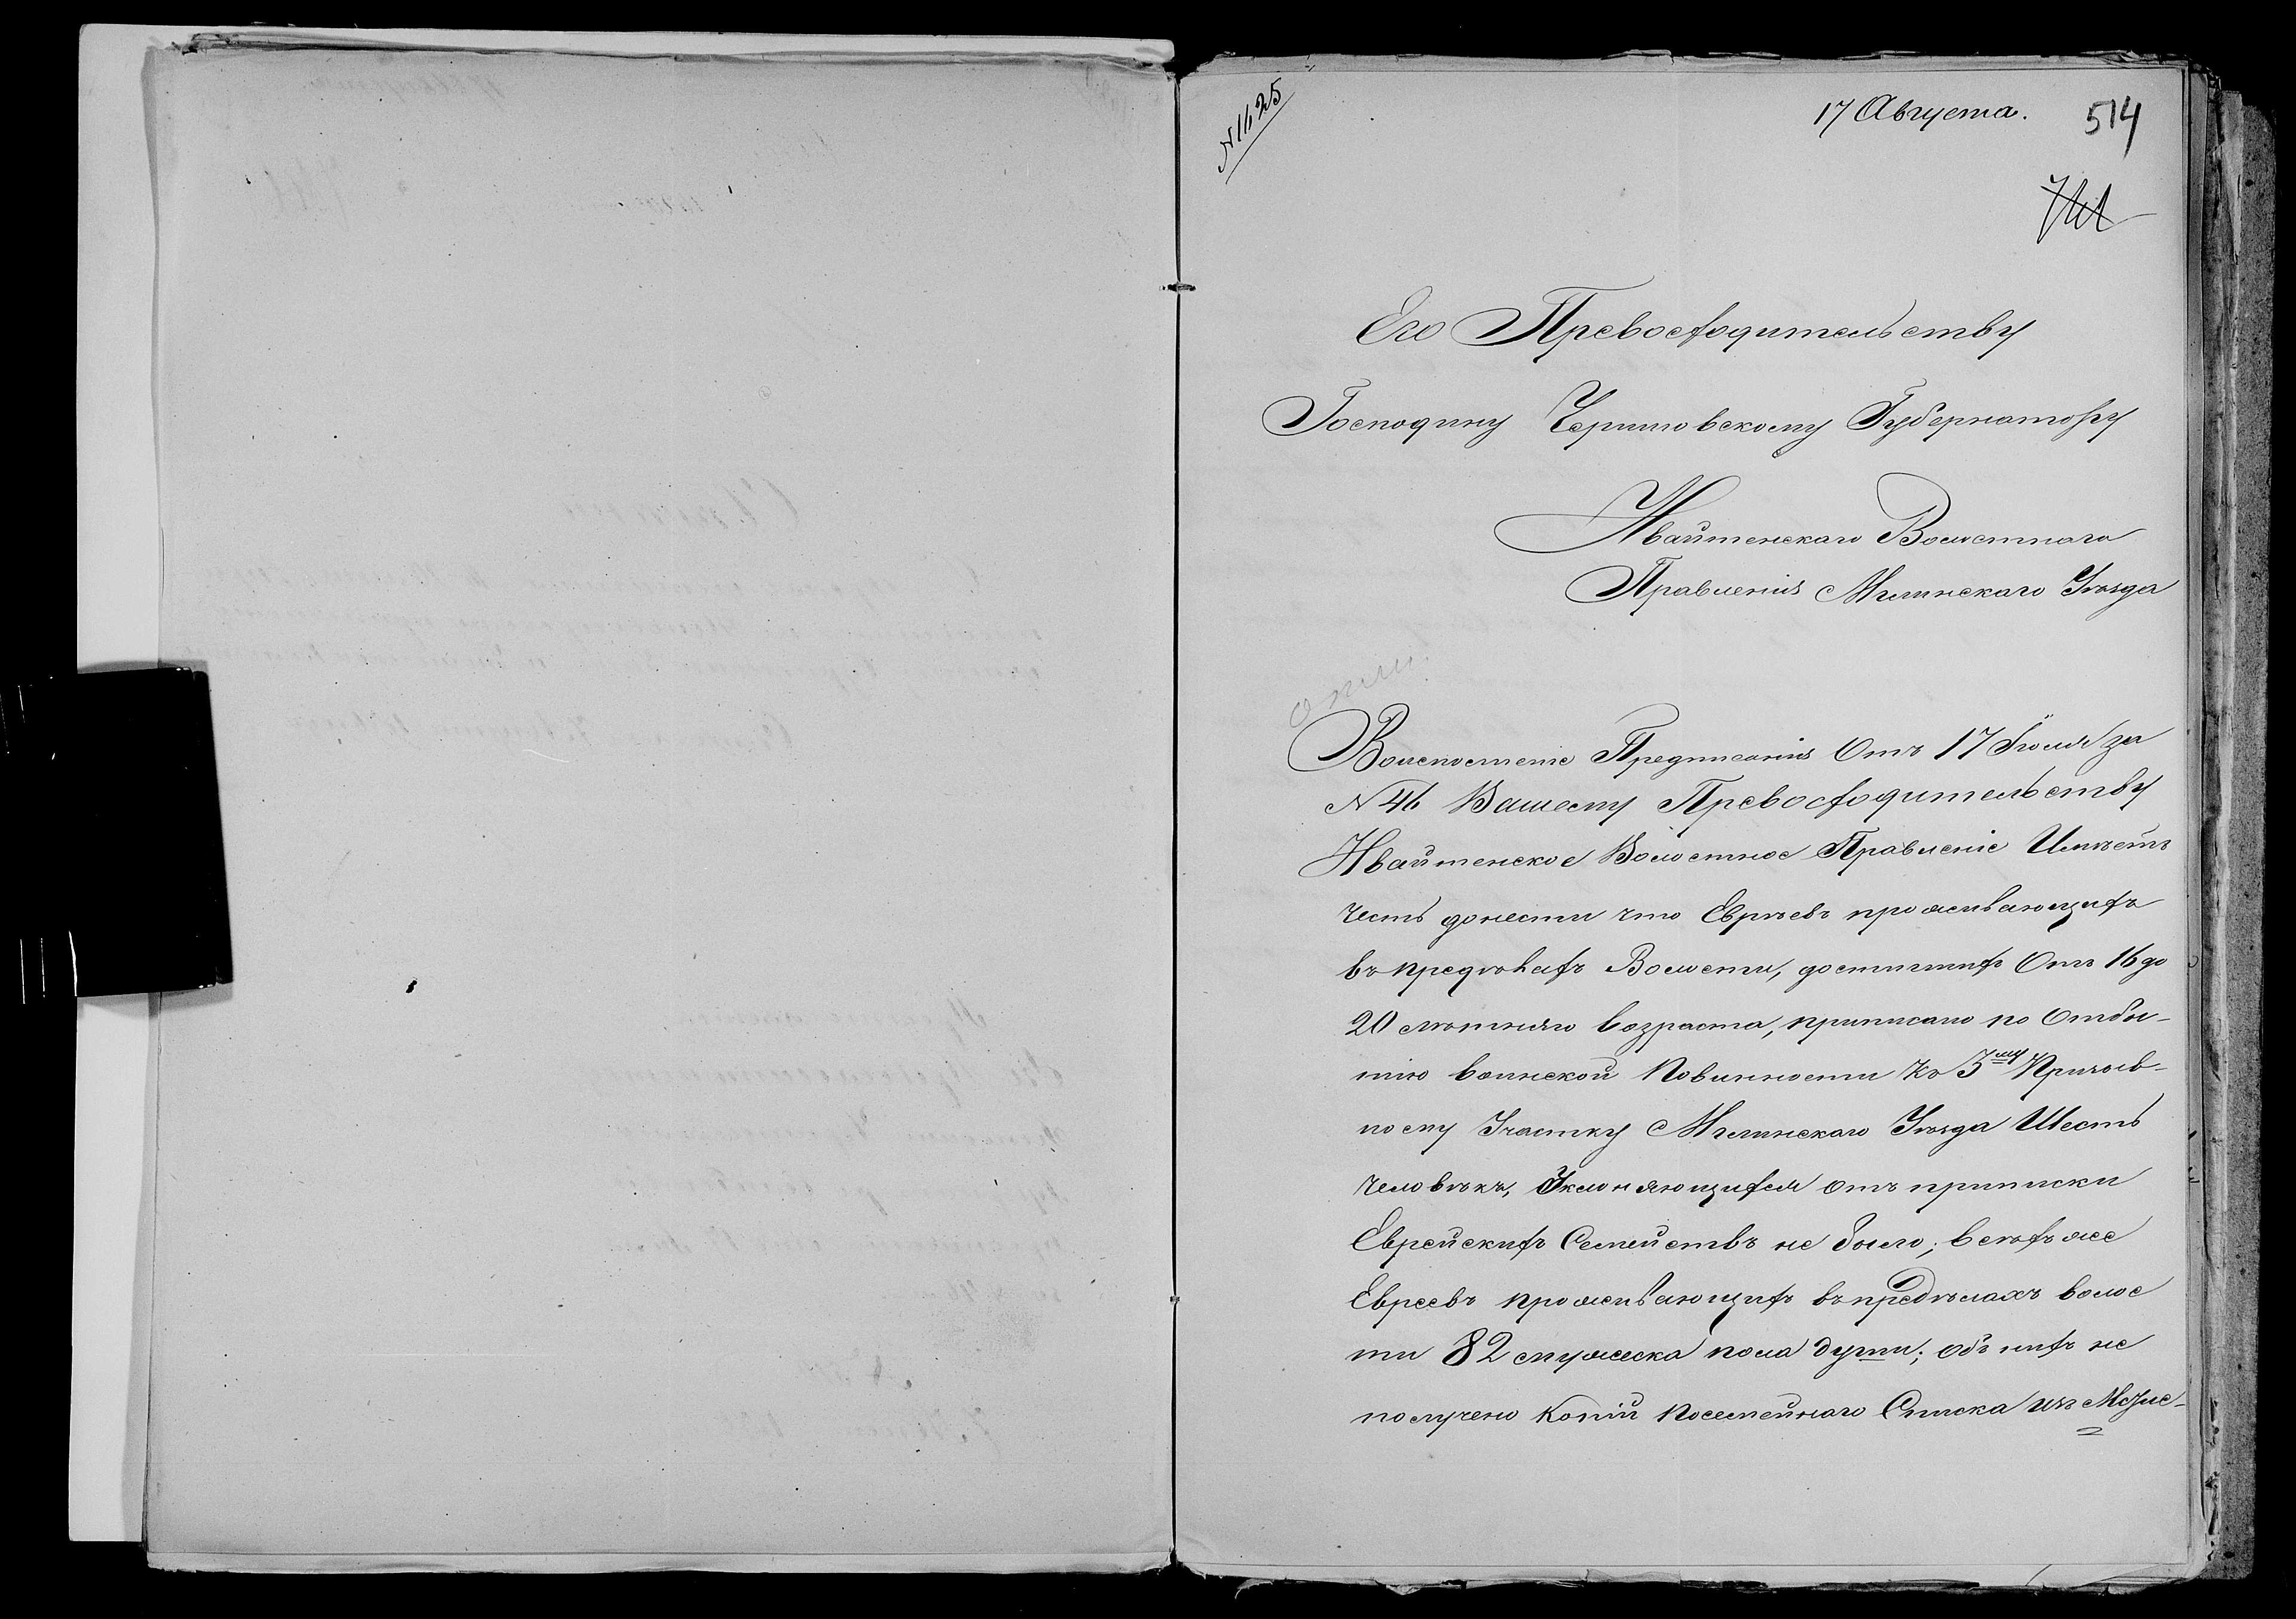 № 1625
17 Августа.
514
Его Превосходительству
Господину Черниговскому Губернатору
Нвайтенскаго Волостнаго
Правленія Мглинскаго Уѣзда
Воисполненіе Предписанія Отъ 17 Іюля за
№ 46 Вашему Превосходительству
Нвайтенское Волостное Правленіе Имѣетъ
честь донести что Евреѣвъ проживающихъ
въ предѣлахъ Волости, достигшихъ Отъ 16 до
20 лѣтняго возраста, приписано по Отбы-
тію воинской Повинности къ 3му Призыв-
ному Участку Мглинскаго Уѣзда Шесть
человѣкъ, Уклоняющихся отъ приписки
Еврейскихъ Семействъ не было; всѣхъ же
Евреевъ проживающихъ въ предѣлахъ волос
ти 82 мужеска пола души; объ нихъ не
получено Копій Посемейнаго Списка изъ